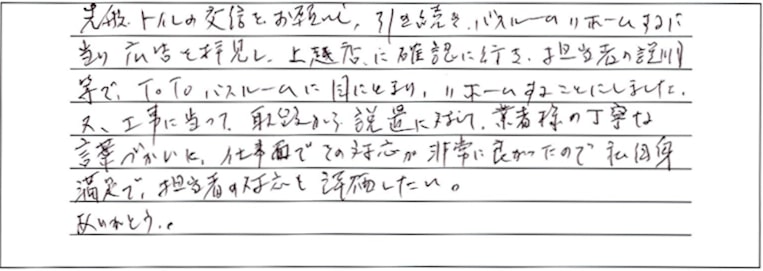 先般トイレの交信をお願いし、引き続き、バスルームリホームするに
当り広告を拝見し、上越店、に確認に行き、担当者の説明
等で、TOTOバスルームに目にとまり、リホームすることにしました。
又、工事に当って、取 から設置に対して、業者様の丁寧な
言葉づかいに、仕事面でその対応が非常に良かったので私自身
満足で、担当者の対応を評価したい。
ありがとう。